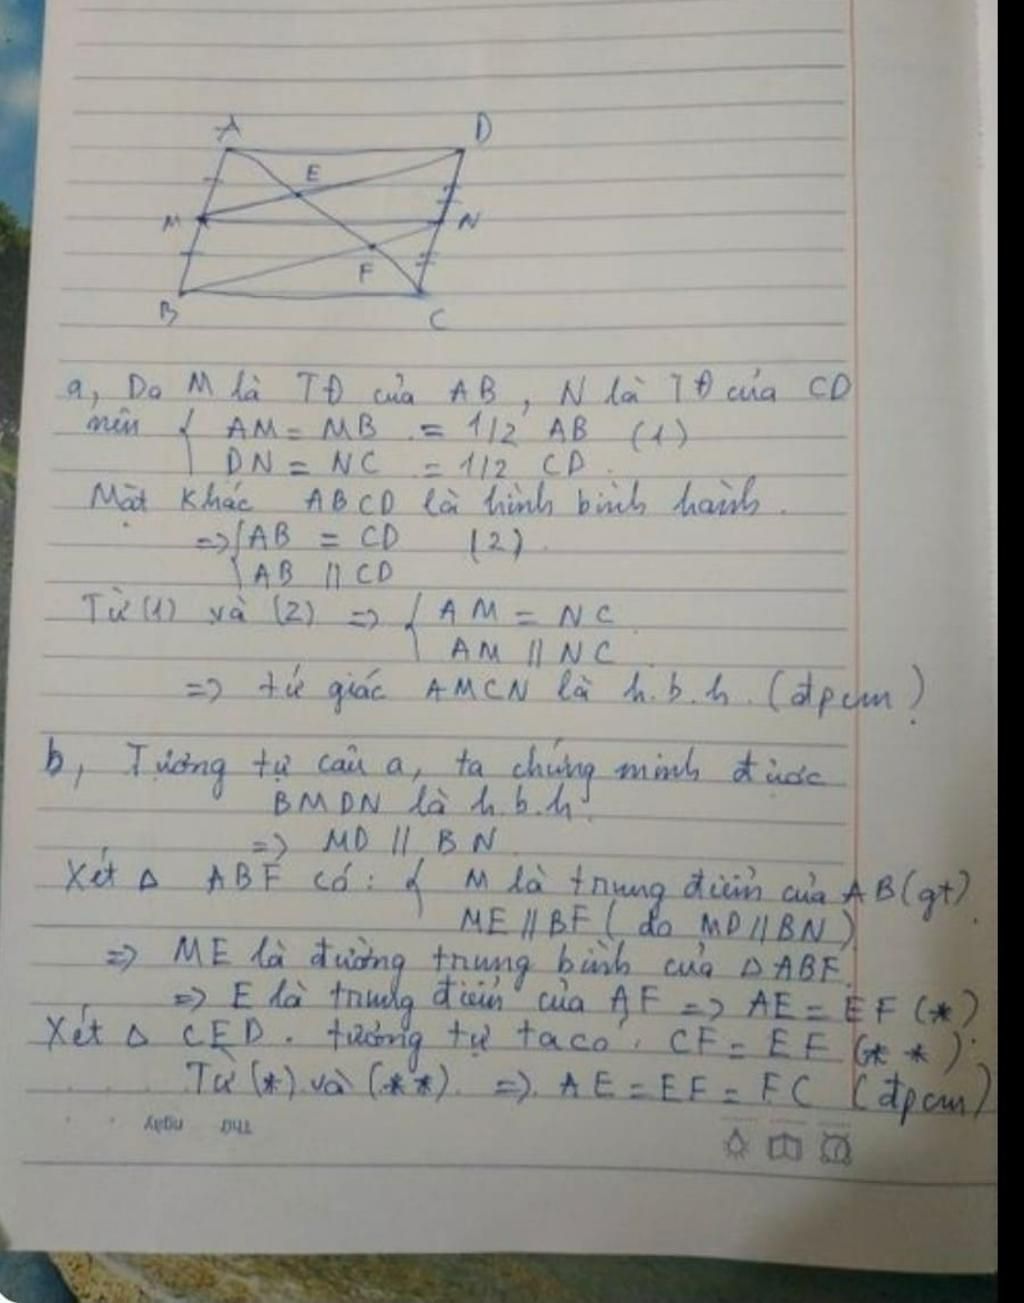 A D
E
M N
F
B C
a, Do M là TĐ của AB, N là TĐ của CD
nên { AM = MB = 1/2 AB (1)
DN = NC = 1/2 CD.
Mặt khác ABCD là hình bình hành.
=> { AB = CD (2).
AB // CD
Từ (1) và (2) => { AM = NC.
AM // NC.
=> tứ giác AMCN là h.b.h. (đpcm)
b, Tương tự câu a, ta chứng minh được
BMDN là h.b.h.
=> MD // BN.
Xét Δ ABF có: { M là trung điểm của AB (gt).
ME // BF (do MD // BN)
=> ME là đường trung bình của Δ ABF.
=> E là trung điểm của AF => AE = EF (*)
Xét Δ CED. tương tự ta có: CF = EF (**).
Từ (*) và (**). => AE = EF = FC (đpcm)
Thứ ngày